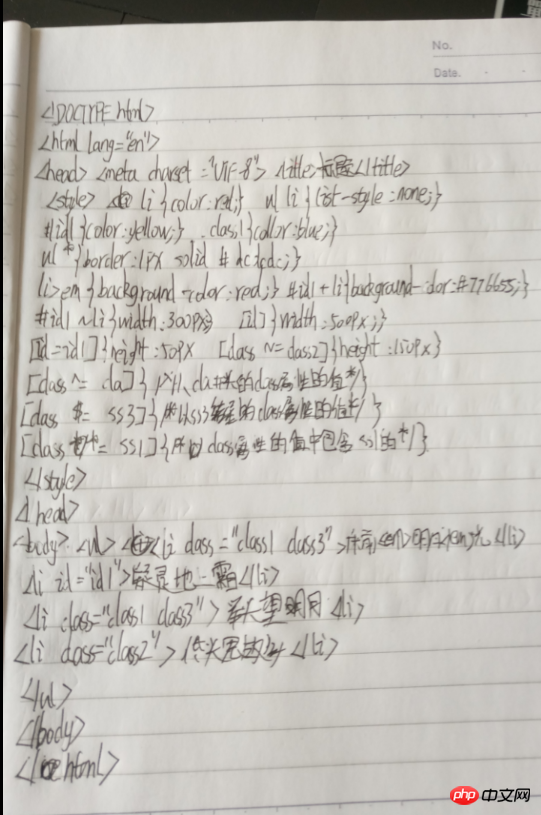 No.
Date.
<!DOCTYPE html>
<html lang="en">
<head> <meta charset="UTF-8"> <title>标题</title>
<style> li {color:red;} ul li {list-style:none;}
#id1 {color:yellow;} .class1 {color:blue;}
ul * {border:1px solid #dc3cdc;}
li>em {background-color:red;} #id1+li {background-color:#776655;}
#id1~li {width:300px} [id] {width:500px;}
[id=id1] {height:50px [class~=class2] {height:150px}
[class^=cla] {/*以cla开头的class属性的值*/}
[class $= ss3] {/*以ss3结尾的class属性的值*/}
[class *= ss1] {/*以class属性的值中包含ss1的*/}
</style>
</head>
<body> <ul> <li class="class1 class3">床前<em>明月</em>光</li>
<li id="id1">疑是地上霜</li>
<li class="class1 class3">举头望明月</li>
<li class="class2">低头思故乡</li>
</ul>
</body>
</html>
php 中文网